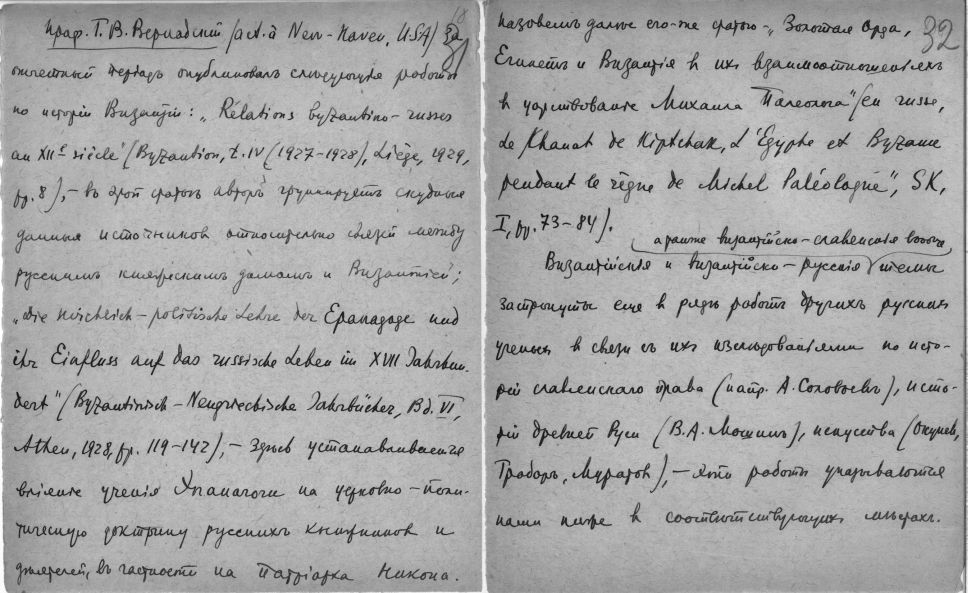 Проф. Г. В. Вернадский (act. à New-Haven, USA) За
отчетный перiодъ опубликовалъ слѣдующiя работы
по исторiи Византiи: „Rélations byzantino-russes
au XIIe siècle" (Byzantion, t. IV (1927-1928), Liège, 1929,
pp. 8), - въ этой статьѣ авторъ группируетъ скудныя
данныя источниковъ относительно связей между
русскимъ княжескимъ домомъ и Византiей;
„Die kirchlich-politische Lehre der Epanagoge und
ihr Einfluss auf das russische Leben im XVII Jahrhun-
dert" (Byzantinisch-Neugriechische Jahrbücher, Bd. VI,
Athen, 1928, pp. 119-142), - здѣсь устанавливается
влiянie ученiя Эпанагоги на церковно-поли-
тическую доктрину русскихъ книжниковъ и
дѣятелей, въ частности на патрiарха Никона.
31
32
назовемъ далѣе его-же статью - „Золотая Орда,
Египетъ и Византiя въ ихъ взаимоотношенiяхъ
въ царствованie Михаила Палеолога" (en russe,
Le Khanat de Kiptchak, L'Égypte et Byzance
pendant le règne de Michel Paléologue", SK,
I, pp. 73-84).
а также византiйско-славянскiя вообще,
Византiйскiя и византiйско-русскiя темы
затронуты еще въ рядѣ работъ другихъ русскихъ
ученыхъ въ связи съ ихъ изслѣдованiями по исто-
рiи славянскаго права (напр. А. Соловьевъ), исто-
рiи древней Руси (В. А. Мошинъ), искусства (Окуневъ,
Грабарь, Муратовъ), - эти работы указываются
нами ниже въ соотвѣтствующихъ мѣстахъ.